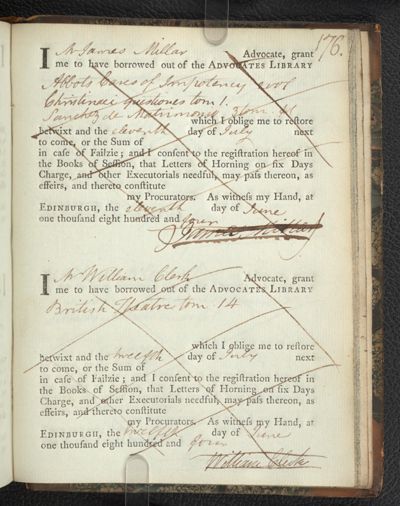 176.
I Mr James Millar Advocate, grant
me to have borrowed out of the ADVOCATES LIBRARY
Abbots Cases of Impotency 2 vol
Christinaei questiones tom 1.
Sanchez de Matrimonio 3 tom
which I oblige me to reſtore
betwixt and the eleventh day of July next
to come, or the Sum of
in caſe of Failzie; and I conſent to the regiſtration hereof in
the Books of Seſſion, that Letters of Horning on ſix Days
Charge, and other Executorials needful, may paſs thereon, as
effeirs, and thereto conſtitute
my Procurators. As witneſs my Hand, at
EDINBURGH, the eleventh day of June
one thouſand eight hundred and four
James Millar
I Mr William Clerk Advocate, grant
me to have borrowed out of the ADVOCATES LIBRARY
British Theatre tom 14
which I oblige me to reſtore
betwixt and the twelfth day of July next
to come, or the Sum of
in caſe of Failzie; and I conſent to the regiſtration hereof in
the Books of Seſſion, that Letters of Horning on ſix Days
Charge, and other Executorials needful, may paſs thereon, as
effeirs, and thereto conſtitute
my Procurators. As witneſs my Hand, at
EDINBURGH, the twelfth day of June
one thouſand eight hundred and four
William Clerk